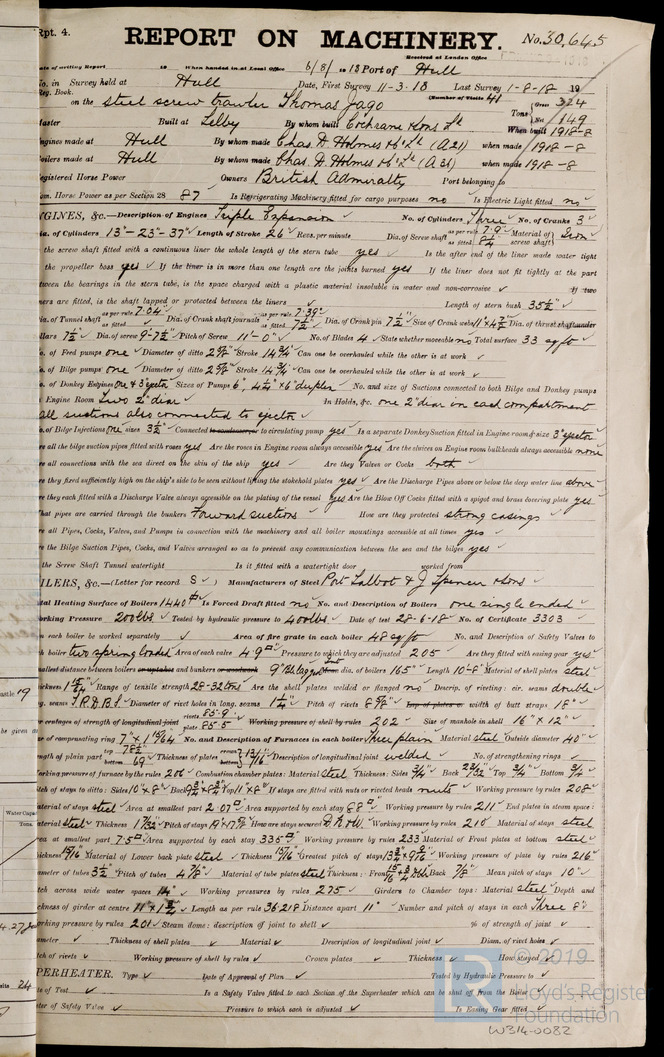 Rpt. 4.
REPORT ON MACHINERY.
No. 30,645
Received at London Office
Date of writing Report 19 When handed in at Local Office 6/8/ 1918 Port of Hull
No. in Survey held at Hull Date, First Survey 11-3-18 Last Survey 1-8-18 19
Reg. Book. (Number of Visits 41
on the steel screw trawler Thomas Jago Tons Gross 324 Net 149
Master Built at Selby By whom built Cochrane & Sons Ld When built 1918-8
Engines made at Hull By whom made Chas. D. Holmes & Co Ld (A21) when made 1918-8
Boilers made at Hull By whom made Chas. D. Holmes & Co Ld when made 1918-8
Registered Horse Power Owners British Admiralty Port belonging to
Nom. Horse Power as per Section 28 87 Is Refrigerating Machinery fitted for cargo purposes no Is Electric Light fitted no
ENGINES, &c.—Description of Engines Triple Expansion No. of Cylinders Three No. of Cranks 3
Dia. of Cylinders 13"-23"-37" Length of Stroke 26" Revs. per minute Dia. of Screw shaft as per rule 7.9" as fitted 8¼" Material of screw shaft Iron
the screw shaft fitted with a continuous liner the whole length of the stern tube yes Is the after end of the liner made water tight
the propeller boss yes If the liner is in more than one length are the joints burned yes If the liner does not fit tightly at the part
between the bearings in the stern tube, is the space charged with a plastic material insoluble in water and non-corrosive If two
liners are fitted, is the shaft lapped or protected between the liners Length of stern bush 35½"
Dia. of Tunnel shaft as per rule 7.04" as fitted Dia. of Crank shaft journals as per rule 7.39" as fitted 7½" Dia. of Crank pin 7½" Size of Crank webs Dia. of thrust shaft under
collars 7½" Dia. of screw 9-7½" Pitch of Screw 11'-0" No. of Blades 4 State whether moveable no Total surface 33 sq ft
No. of Feed pumps one Diameter of ditto Stroke 14¾" Can one be overhauled while the other is at work
No. of Bilge pumps one Diameter of ditto Stroke 14¾" Can one be overhauled while the other is at work
No. of Donkey Engines One & 3" ejector Sizes of Pumps 6", 4½" x 6" duplex No. and size of Suctions connected to both Bilge and Donkey pumps
Engine Room Two 2" diar In Holds, &c. one 2" diar in each compartment
all suctions also connected to ejector
No. of Bilge Injections one sizes 3½" Connected to condenser, or to circulating pump yes Is a separate Donkey Suction fitted in Engine room & size 3" ejector
Are all the bilge suction pipes fitted with roses yes Are the roses in Engine room always accessible yes Are the sluices on Engine room bulkheads always accessible none
Are all connections with the sea direct on the skin of the ship yes Are they Valves or Cocks both
Are they fixed sufficiently high on the ship's side to be seen without lifting the stokehold plates yes Are the Discharge Pipes above or below the deep water line above
Are they each fitted with a Discharge Valve always accessible on the plating of the vessel yes Are the Blow Off Cocks fitted with a spigot and brass covering plate yes
What pipes are carried through the bunkers Forward suctions How are they protected strong casings
Are all Pipes, Cocks, Valves, and Pumps in connection with the machinery and all boiler mountings accessible at all times yes
Are the Bilge Suction Pipes, Cocks, and Valves arranged so as to prevent any communication between the sea and the bilges yes
the Screw Shaft Tunnel watertight Is it fitted with a watertight door worked from
BOILERS, &c.—(Letter for record S) Manufacturers of Steel Port Talbot & J. Spencer & Sons
Total Heating Surface of Boilers 1440 Is Forced Draft fitted no No. and Description of Boilers one single ended
Working Pressure 200 lbs Tested by hydraulic pressure to 400 lbs Date of test 28-6-18 No. of Certificate 3303
Can each boiler be worked separately Area of fire grate in each boiler 48 sq ft No. and Description of Safety Valves to
each boiler two spring loaded Area of each valve 4.9 Pressure to which they are adjusted 205 Are they fitted with easing gear yes
Smallest distance between boilers or uptakes and bunkers or woodwork 9" dia. of boilers 165" Length 10'-8" Material of shell plates steel
Thickness Range of tensile strength 28-32 tons Are the shell plates welded or flanged no Descrip. of riveting: cir. seams double
long. seams T.R.D.B.S. Diameter of rivet holes in long. seams 1¼" Pitch of rivets Lap of plates or width of butt straps 18"
Per centages of strength of longitudinal joint rivets 85.9 plate 85.5 Working pressure of shell by rules 202 Size of manhole in shell 16" x 12"
Size of compensating ring No. and Description of Furnaces in each boiler Three plain Material steel Outside diameter 40"
Length of plain part top 78½" bottom 69" Thickness of plates Description of longitudinal joint welded No. of strengthening rings
Working pressure of furnace by the rules 206 Combustion chamber plates: Material steel Thickness: Sides ¾" Back 23/32" Top ¾" Bottom ¾"
Pitch of stays to ditto: Sides 10" x 8" Back Top 11" x 8" If stays are fitted with nuts or riveted heads nuts Working pressure by rules 208
Material of stays steel Area at smallest part 2.07 Area supported by each stay 88 Working pressure by rules 211 End plates in steam space:
Material steel Thickness 1 7/32" Pitch of stays How are stays secured D.N. & W. Working pressure by rules 210 Material of stays steel
Area at smallest part 7.5 Area supported by each stay 335 Working pressure by rules 233 Material of Front plates at bottom steel
Thickness 15/16" Material of Lower back plate steel Thickness 15/16" Greatest pitch of stays Working pressure of plate by rules 216
Diameter of tubes 3½" Pitch of tubes 4⅞" Material of tube plates steel Thickness: Front Back ⅞" Mean pitch of stays 10"
Pitch across wide water spaces 14" Working pressures by rules 275 Girders to Chamber tops: Material steel Depth and
thickness of girder at centre Length as per rule Distance apart 11" Number and pitch of stays in each Three 8"
Working pressure by rules 201 Steam dome: description of joint to shell % of strength of joint
Diameter Thickness of shell plates Material Description of longitudinal joint Diam. of rivet holes
Pitch of rivets Working pressure of shell by rules Crown plates Thickness How stayed
SUPERHEATER. Type Date of Approval of Plan Tested by Hydraulic Pressure to
Date of Test Is a Safety Valve fitted to each Section of the Superheater which can be shut off from the Boiler
Diameter of Safety Valve Pressure to which each is adjusted Is Easing Gear fitted
© 2019
Lloyd's Register
Foundation
W314-0082